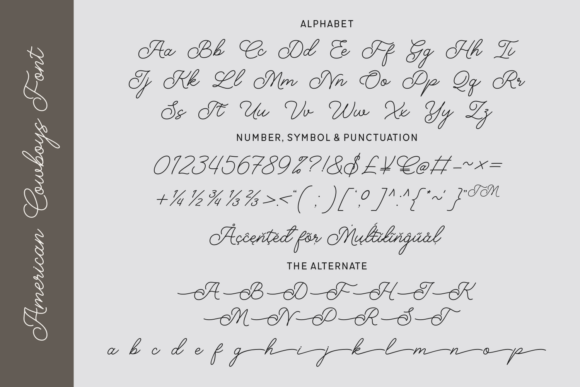 American Cowboys Font
ALPHABET
Aa Bb Cc Dd Ee Ff Gg Hh Ii
Jj Kk Ll Mm Nn Oo Pp Qq Rr
Ss Tt Uu Vv Ww Xx Yy Zz
NUMBER, SYMBOL & PUNCTUATION
0123456789%?!&$£¥€@#_~×=
+¼½¾⅓⅔><¨(;)[°]^{"~'}"TM
Accented for Multilingual
THE ALTERNATE
A B D F H I K
M N P R S T
a b c d e f g h i j k l m n o p